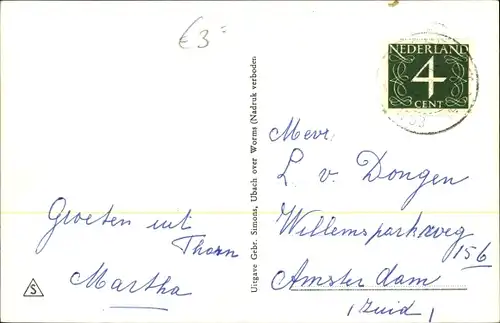 €3=
NEDERLAND
4
CENT
Mevr.
L. v. Dongen
Willemsparkweg
156
Amsterdam
(Zuid)
Groeten uit
Thorn
Martha
S
Uitgave Gebr. Simons, Ubach over Worms (Nadruk verboden